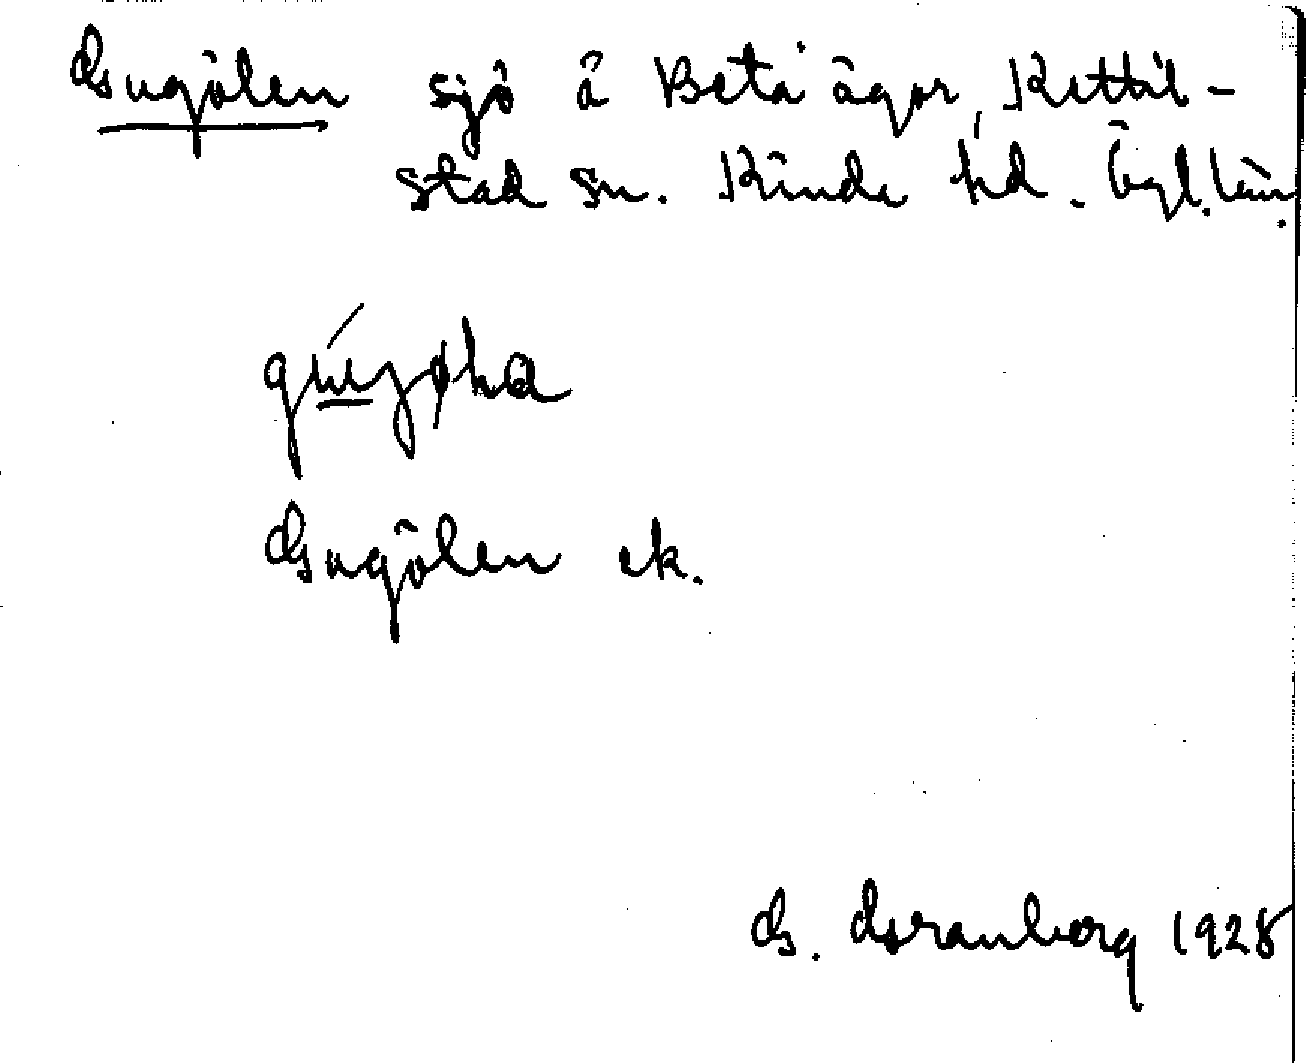 Gugölen sjö å Beta ägor, Kettil-
stad sn. Kinda hd. Ögl. län.
Gugölen ek.
G. Granberg 1928